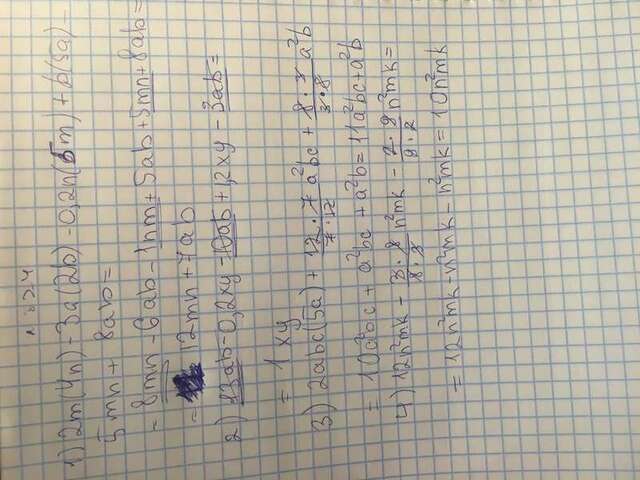 1) 2m(4n) - 3a(2b) - 0,2n(5m) + b(5a) -
5mn + 8ab =
= 8mn - 6ab - 1nm + 5ab + 5mn + 8ab =
= 12mn + 7ab
2) 13ab - 0,2xy - 10ab + 1,2xy - 3ab =
= 1xy
3) 2abc(5a) + \frac{12 \cdot 7}{7 \cdot 12} a²bc + \frac{8 \cdot 3}{3 \cdot 8} a²b
= 10a²bc + a²bc + a²b = 11a²bc + a²b
4) 12n²mk - \frac{3 \cdot 8}{8 \cdot 3} n²mk - \frac{2 \cdot 9}{9 \cdot 2} n²mk =
= 12n²mk - n²mk - n²mk = 10n²mk